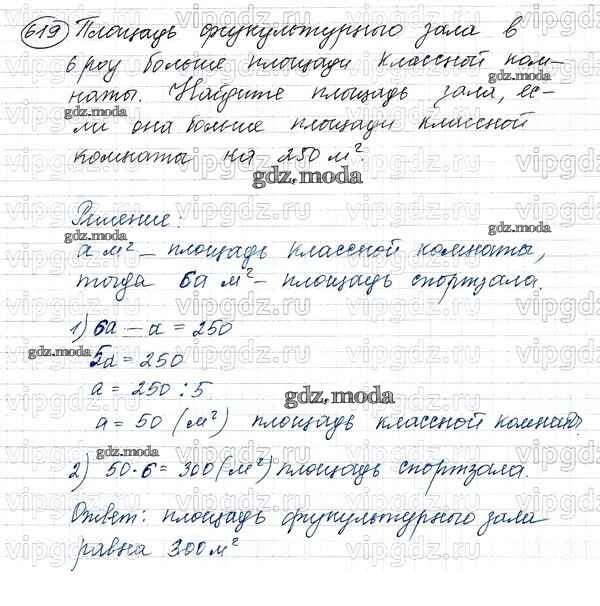 619 Площадь физкультурного зала в
6 раз больше площади классной ком-
gdz.moda
наты. Найдите площадь зала, ес-
gdz.moda
ли она больше площади классной
комнаты на 250 м².
gdz.moda
Решение:
gdz.moda
gdz.moda
a м² – площадь классной комнаты,
тогда 6a м² – площадь спортзала.
1) 6a – a = 250
gdz.moda
5a = 250
a = 250 : 5
gdz.moda
a = 50 (м²) площадь классной комнаты
gdz.moda
2) 50 · 6 = 300 (м²) площадь спортзала.
Ответ: площадь физкультурного зала
равна 300 м²
vipgdz.ru